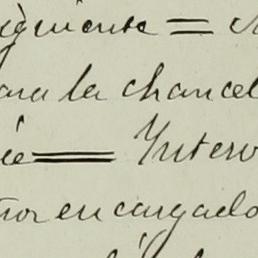 siguiente =
para la chancel
ie = Interv
ñor encargado